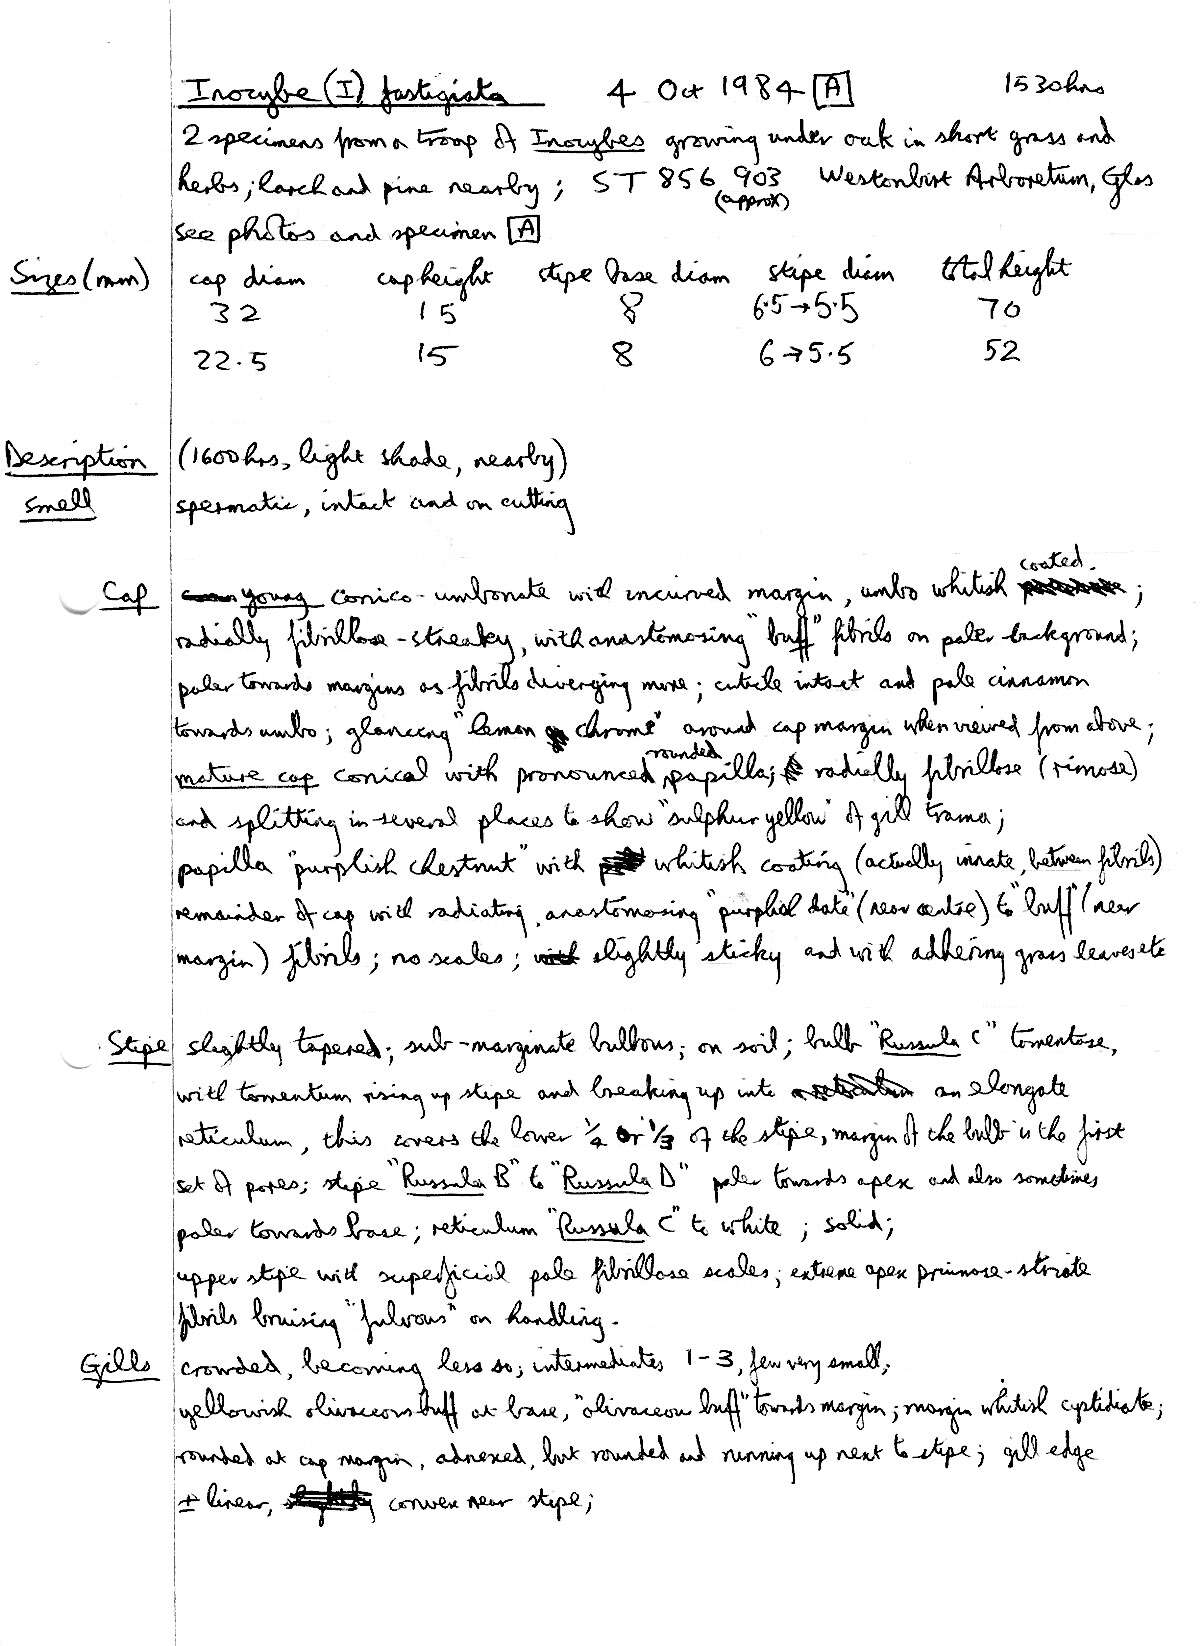 Inocybe (I) fastigiata 4 Oct 1984 [A] 1530hrs
2 specimens from a troop of Inocybes growing under oak in short grass and
herbs; larch and pine nearby; ST 856 903 Westonbirt Arboretum, Glos
(approx)
see photos and specimen [A]
Sizes (mm) cap diam cap height stipe base diam stipe diam total height
32 15 8 6.5→5.5 70
22.5 15 8 6→5.5 52
Description (1600hrs, light shade, nearby)
smell spermatic, intact and on cutting
coated.
Cap young conico-umbonate with incurved margin, umbo whitish ;
radially fibrillose-streaky, with anastomosing "buff" fibrils on paler background;
paler towards margins as fibrils diverging more; cuticle intact and pale cinnamon
towards umbo; glancing "lemon chrome" around cap margin when viewed from above;
rounded
mature cap conical with pronounced papilla; radially fibrillose (rimose)
and splitting in several places to show "sulphur yellow" of gill trama;
papilla "purplish chestnut" with whitish coating (actually innate, between fibrils)
remainder of cap with radiating, anastomosing "purplish date" (near centre) to "buff" (near
margin) fibrils; no scales; slightly sticky and with adhering grass leaves etc
Stipe slightly tapered; sub-marginate bulbous; on soil; bulb "Russula C" tomentose,
with tomentum rising up stipe and breaking up into an elongate
reticulum, this covers the lower 1/4 or 1/3 of the stipe, margin of the bulb is the first
set of pores; stipe "Russula B" to "Russula D" paler towards apex and also sometimes
paler towards base; reticulum "Russula C" to white; solid;
upper stipe with superficial pale fibrillose scales; extreme apex pruinose-striate
fibrils bruising "fulvous" on handling.
Gills crowded, becoming less so; intermediates 1-3, few very small;
yellowish olivaceous buff at base, "olivaceous buff" towards margin; margin whitish cystidiate;
rounded at cap margin, adnexed, but rounded and running up next to stipe; gill edge
± linear, convex near stipe;